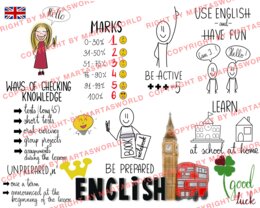 Hello
MARKS
0-30% 1
31-50% 2
51-75% 3
76-90% 4
91-99% 5
100% 6
USE ENGLISH
and
HAVE FUN
Hello!
BE ACTIVE
WAYS OF CHECKING
KNOWLEDGE
tests
short tests
oral answers
group projects
assignments
during the lesson
LEARN
at school at home
UNPREPARED
once a term
announced at the
beginning of the lesson
BE PREPARED
ENGLISH
good
luck
COPYRIGHT BY MARTASWORLD